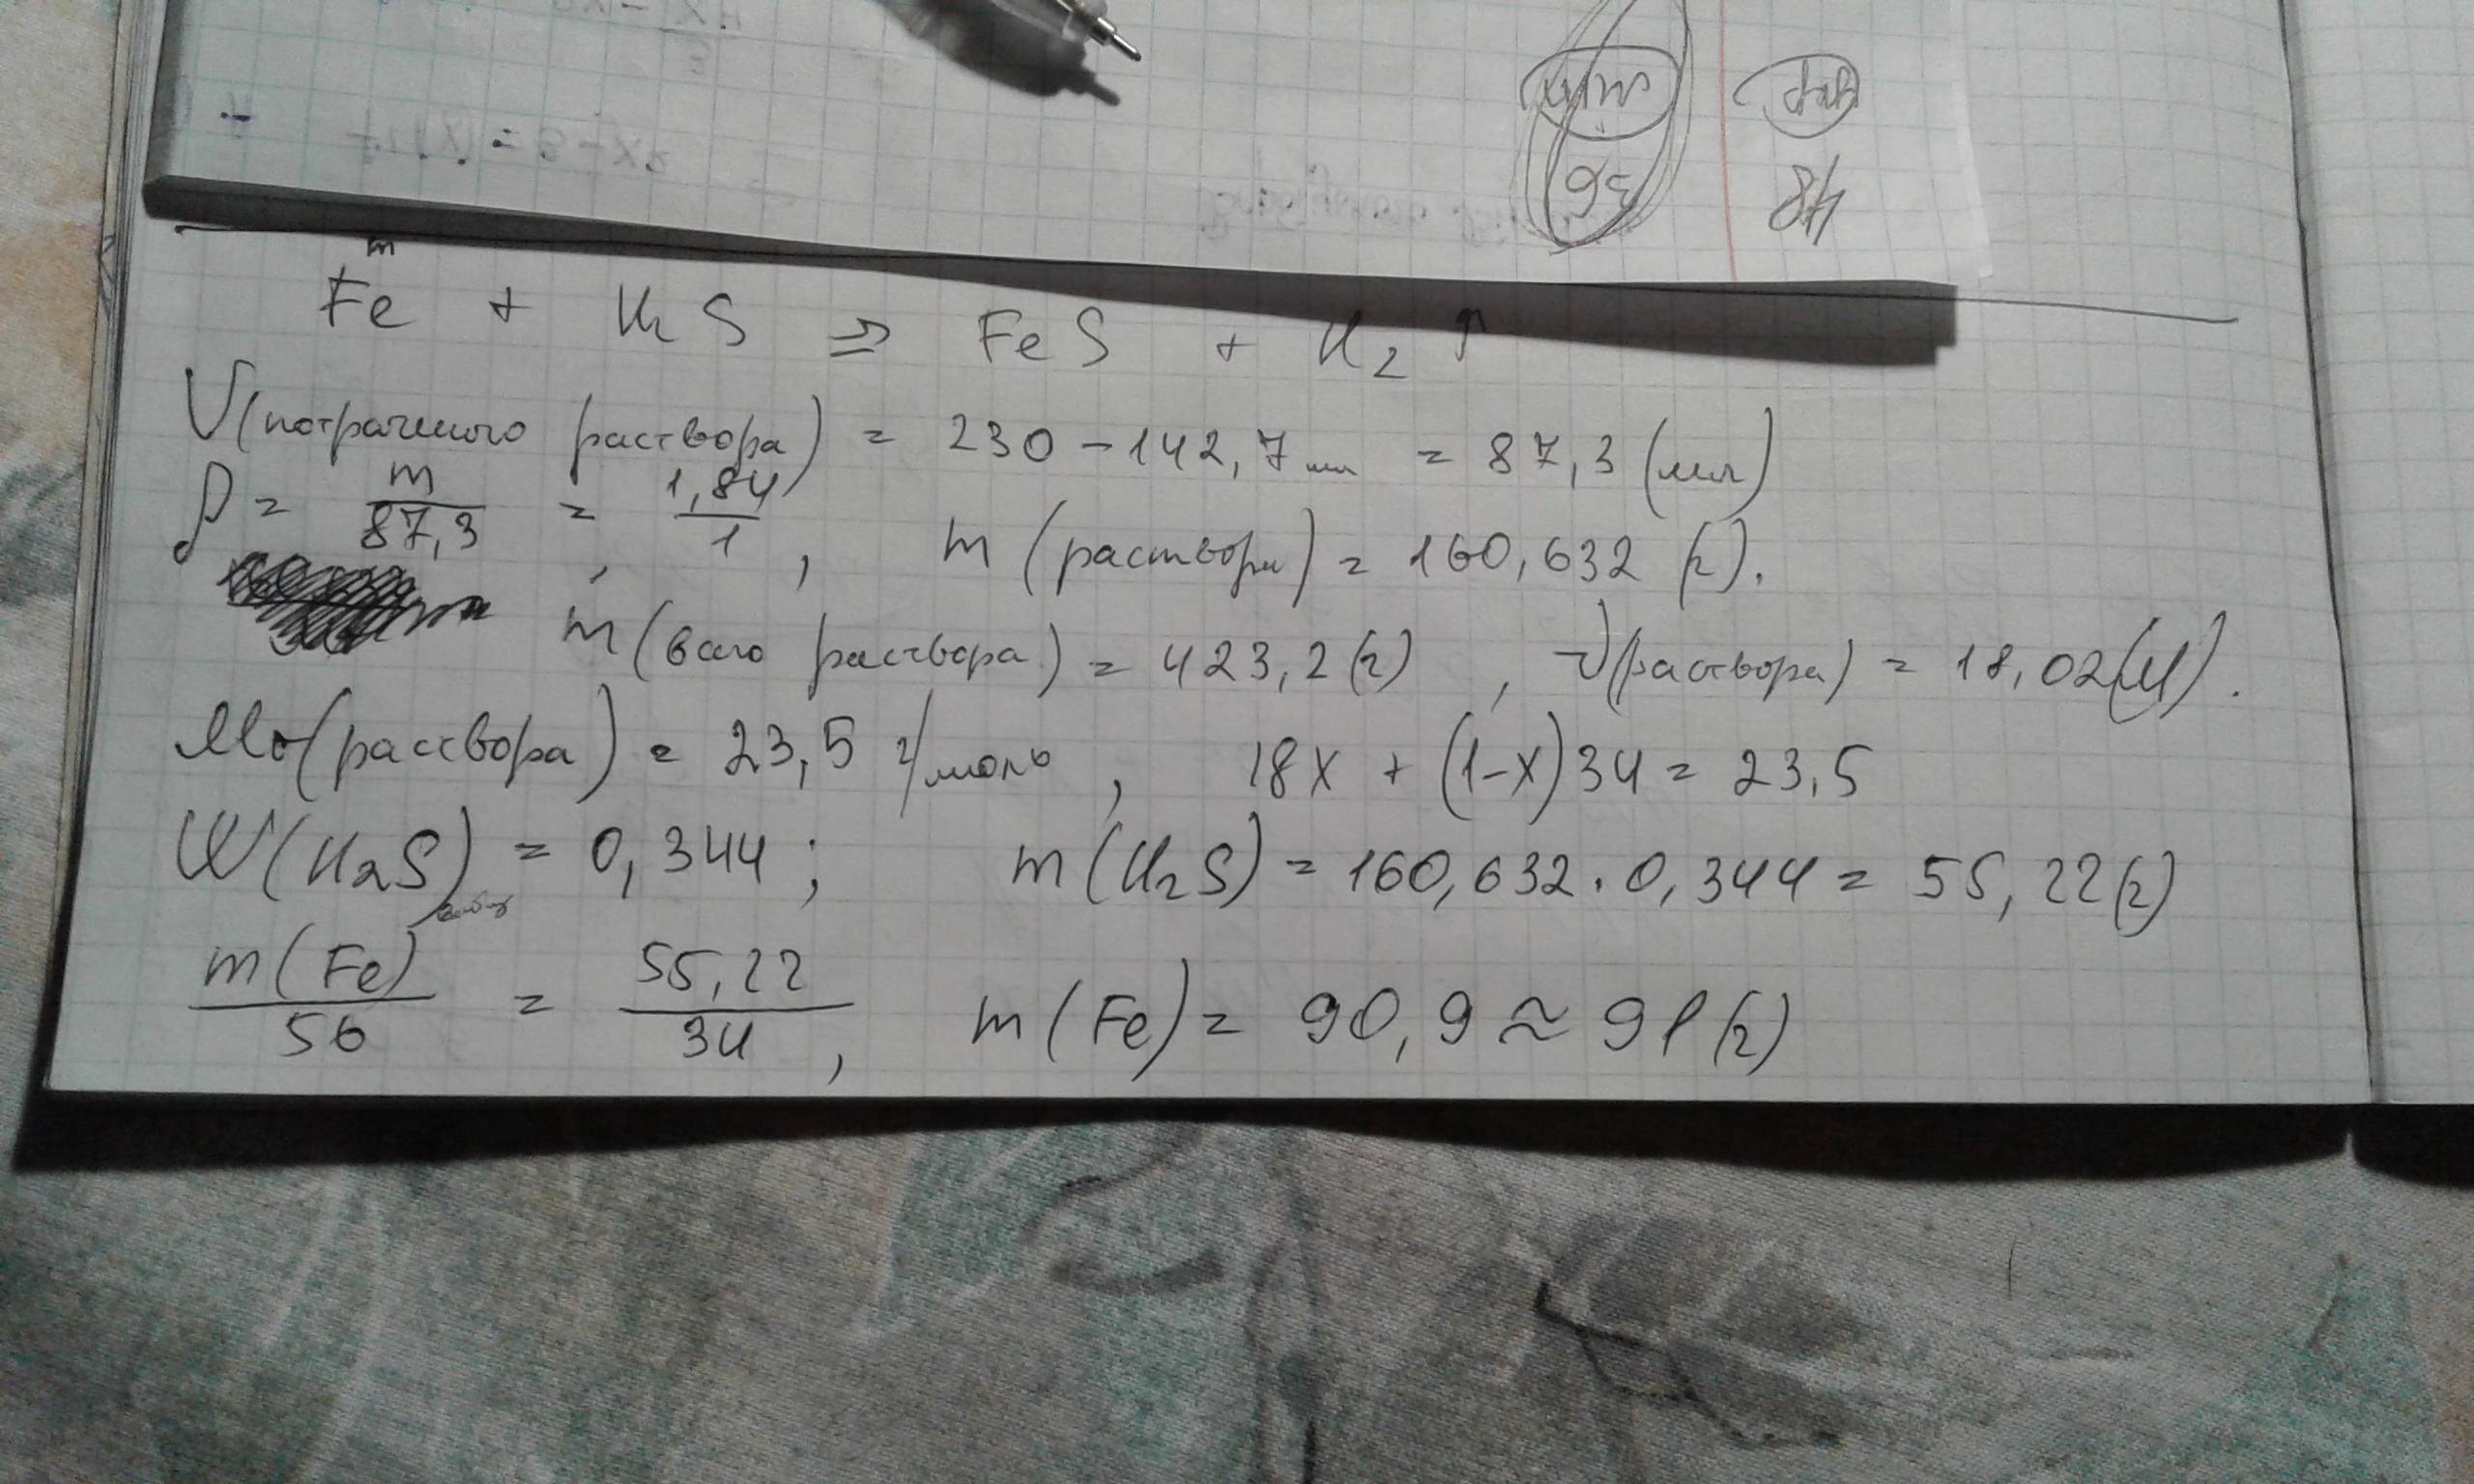 36
48
m
Fe + H2S ⇒ FeS + H2 ↑
V(потраченого раствора) = 230 - 142,7 мл = 87,3 (мл)
ρ = m/87,3 = 1,84/1 , m (раствора) = 160,632 (г).
m (всего раствора) = 423,2 (г) , ν(раствора) = 18,02 (М).
Mr(раствора) = 23,5 г/моль , 18x + (1-x)34 = 23,5
W(H2S) = 0,344 ; m(H2S) = 160,632 · 0,344 = 55,22 (г)
m(Fe)/56 = 55,22/34 , m(Fe) = 90,9 ≈ 91 (г)